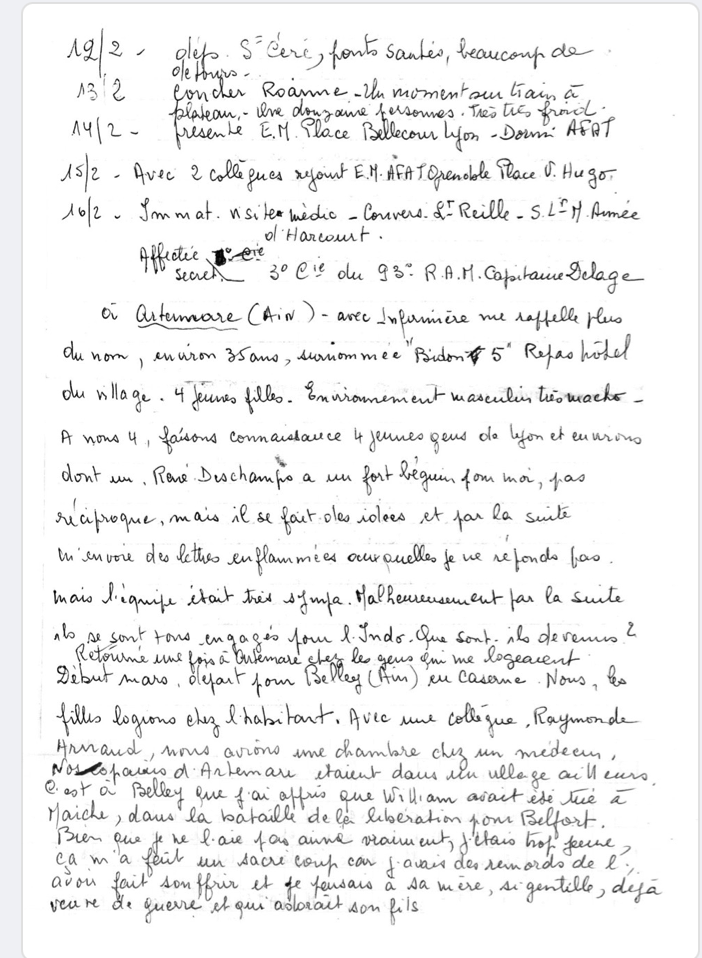 12/2 - dép. St Céré, ponts sautés, beaucoup de
détours.
13/2 coucher Roanne - Un moment sur train à
plateau, - Une douzaine personnes. Très très froid.
14/2 - présenté E.M. Place Bellecour Lyon - Dormi AFAT
15/2 - Avec 2 collègues rejoint E.M. AFAT Grenoble Place V. Hugo.
16/2 - Immat. visite médic - Convers. Lt Reille - S. Lt M. Aimée
d'Harcourt.
Affectée
secret. 3° Cie du 93° R.A.M. Capitaine Delage
à Artemare (Ain) - avec Infirmière me rappelle plus
du nom, environ 35 ans, surnommée "Bidon 5" Repas hôtel
du village. 4 jeunes filles. Environnement masculin très macho -
A nous 4, faisons connaissance 4 jeunes gens de Lyon et environs
dont un, René Deschamps a un fort béguin pour moi, pas
réciproque, mais il se fait des idées et par la suite
m'envoie des lettres enflammées auxquelles je ne réponds pas.
Mais l'équipe était très sympa. Malheureusement par la suite
ils se sont tous engagés pour l'Indo. Que sont-ils devenus ?
Retourné une fois à Artemare chez les gens qui me logeaient
Début mars, départ pour Belley (Ain) en caserne. Nous, les
filles logions chez l'habitant. Avec une collègue, Raymonde
Arnaud, nous avions une chambre chez un médecin.
Nos copains d'Artemare étaient dans un village ailleurs.
C'est à Belley que j'ai appris que William avait été tué à
Maiche, dans la bataille de la libération pour Belfort.
Bien que je ne l'aie pas aimé vraiment, j'étais trop jeune,
ça m'a fait un sacré coup car j'avais des remords de l'
avoir fait souffrir et je pensais à sa mère, si gentille, déjà
veuve de guerre et qui adorait son fils